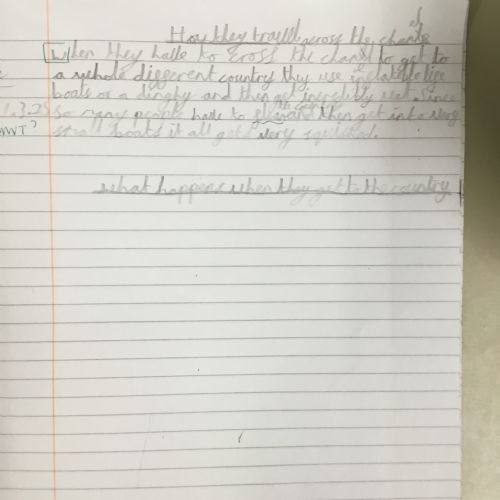 How they travel across the chanle
el
When they have to cross the chanel to get to
a whole different country they use inflatable
boats or a dinghy and then get incredibly wet. Since
1.3.25 So many people have to and then get into a very
WT? small boats it all gets very squished.
what happens when they get to the country